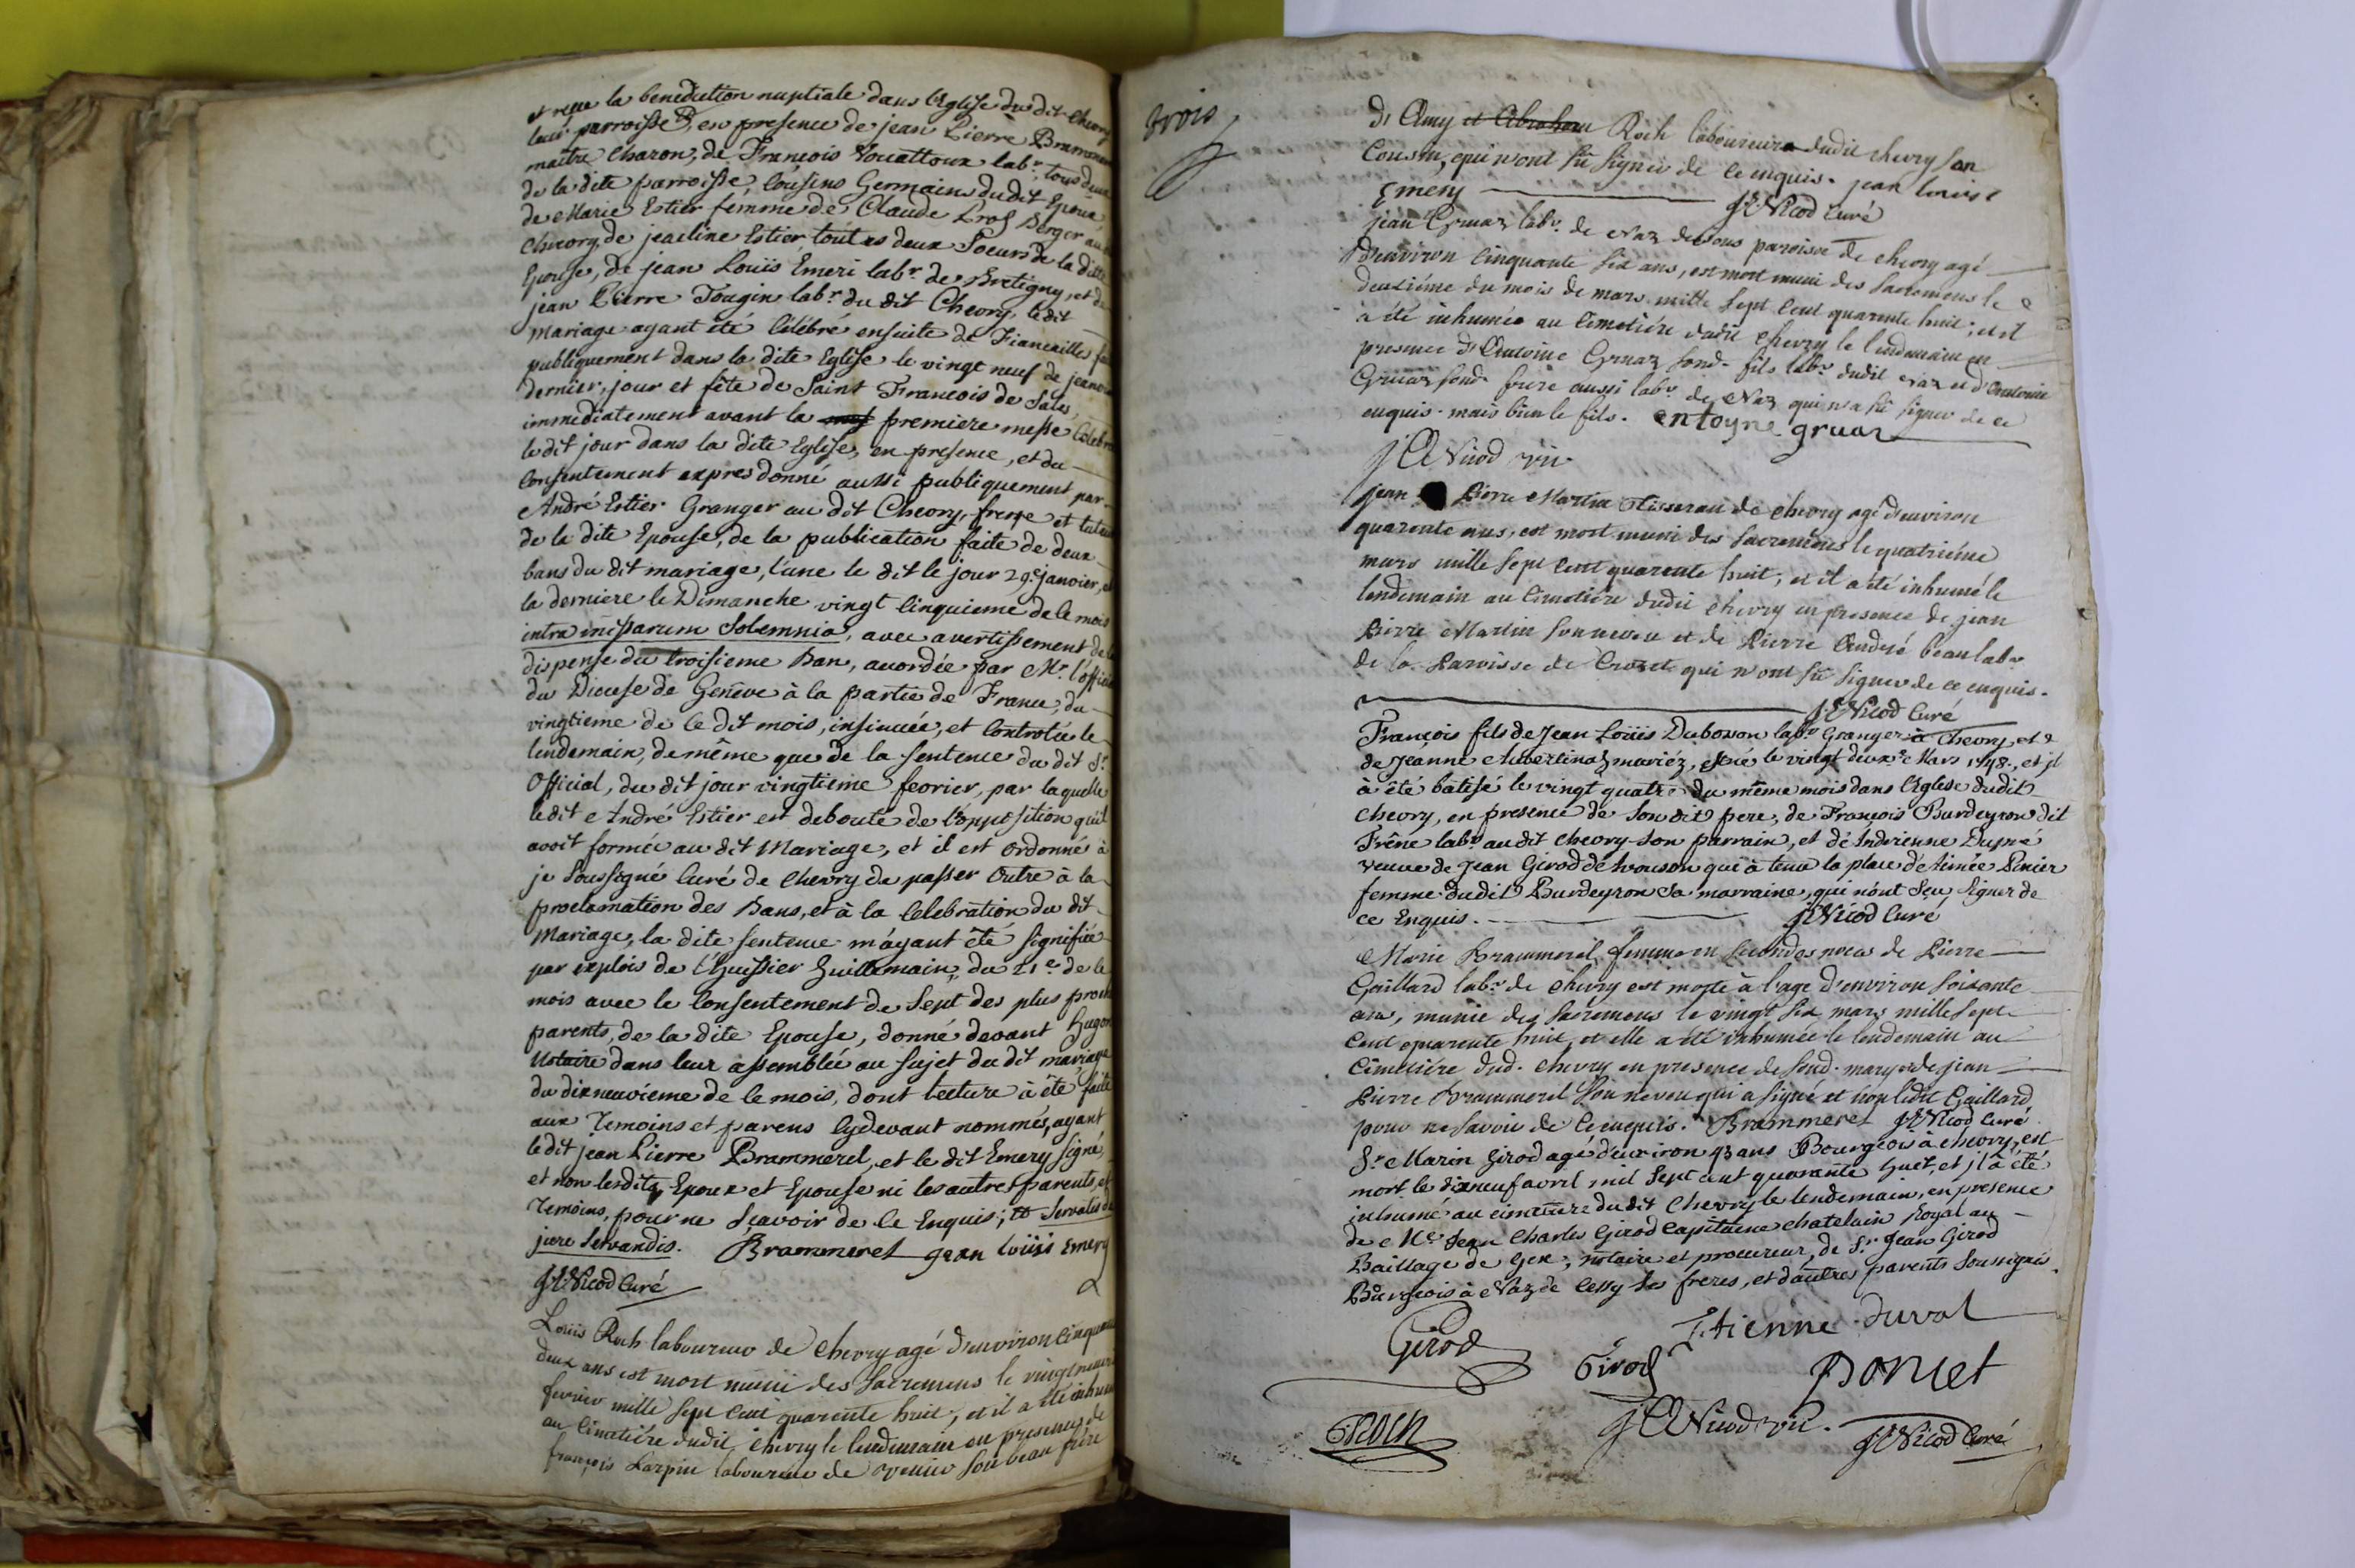 et reçu la benediction nuptiale dans l'Eglise du dit Chevry
leur parroisse, en presence de jean Pierre Brammerel
maitre charon, de François Vouattoux labr. tous deux
de la dite parroisse, Cousins Germains du dit Epoux,
de Marie Estier femme de Claude Pros Berger au
Chevry, de jeacline Estier, toutes deux Soeurs de la ditte
Epouse, de jean Loüis Emeri labr. de Bretigny, et de
jean Pierre Tougin labr. du dit Chevry, le dit
mariage ayant été Célébré ensuite de Fiancailles
publiquement dans la dite Eglise le vingt neuf de
dernier, jour et fête de Saint François de Sales,
immediatement avant la premiere messe
le dit jour dans la dite Eglise, en presence, et du
Consentement expres donné aussi publiquement par
André Estier Granger au dit Chevry, frere et tuteur
de la dite Epouse, de la publication faite de deux
bans du dit mariage, l'une le dit le jour 29e janvier, et
la derniere le Dimanche vingt Cinquieme de ce mois
intra missarum Solemnia, avec avertissement de la
dispense du troisieme Ban, accordée par Mr. l'official
du Diocese de Genève à la partie de France, du
vingtieme de ce dit mois, insinuée, et Controlée le
lendemain, de même que de la sentence du dit Sr.
Official, du dit jour vingtieme fevrier, par laquelle
le dit André Estier est debouté de l'opposition qu'il
avoit formée au dit Mariage, et il est ordonné à
je soussigné Curé de Chevry de passer Outre à la
proclamation des Bans, et à la Celebration du dit
Mariage, la dite sentence m'ayant été signifiée
par explois de l'Huissier Guillemain, du 21e de ce
mois avec le Consentement de Sept des plus proches
parents, de la dite Epouse, donné devant Hugon
Notaire dans leur assemblée au sujet du dit mariage
du dixneuvieme de ce mois, dont lecture à été faite
aux Temoins et parens Cydevant nommés, ayant
le dit jean Pierre Brammerel, et le dit Emery signé,
et non les dits Epoux et Epouse ni les autres parents, et
Temoins, pour ne sçavoir de ce Enquis; et Servatis de
jure Servandis. Brammeret jean loüis Emery
J A Nicod Curé
Loüis Roch laboureur de Chevry agé d'environ Cinquante
deux ans est mort muni des Sacremens le vingtneuvie
fevrier mille sept cent quarente huit, et il a été inhumé
au Cimetiére dudit Chevry le lendemain en presence de
françois Larpin laboureur de son beau frére
trois
d'Amy et Abraham Roch laboureur dudit chevry son
Cousin, qui n'ont sû signer de ce enquis. jean louis
Emery J A Nicod Curé
jean Gruaz labr. de Naz dessous paroisse de chevry agé
d'environ Cinquante six ans, est mort muni des Sacremens le
deuxiéme du mois de mars mille sept cent quarente huit; et il
a été inhumée au Cimetiére dudit chevry le lendemain en
presence d'Antoine Gruaz sond. fils labr. dudit Naz et d'Antoine
Gruaz sond. frére aussi labr. de Naz qui n'a sû signer de ce
enquis. mais bien le fils. entoyne gruaz
J A Nicod vic
jean Pierre Martin Tisseran de chevry agé d'environ
quarente ans, est mort muni des Sacremens le quatriéme
mars mille sept cent quarente huit, et il a été inhumé le
lendemain au Cimetiére dudit chevry en presence de jean
Pierre Martin son neveu et de Pierre André beau labr.
de la Paroisse de Crozet qui n'ont sû signer de ce enquis.
J A Nicod Curé
François fils de Jean Loüis Duboson labr. Granger à Chevry, et
de Jeanne Aubertina mariéz, est né le vingt deuxe. Mars 1748., et jl
à été batisé le vingt quatre du même mois dans l'Eglise dudit
chevry, en presence de son dit pere, de François Burdeyron dit
Frêne labr. au dit chevry son parrain, et de Andrienne Dupré
veuve de Jean Girod de Vouson qui à tenu la place de Aimée Linier
femme du dit Burdeyron sa marraine, qui n'ont sçu signer de
ce Enquis. J A Nicod Curé
Marie Brammerel femme en secondes noces de Pierre
Gaillard labr. de Chevry est morte à l'age d'environ soixante
ans, munie des sacremens le vingt six mars mille sept
cent quarente huit, et elle a été inhumée le lendemain au
Cimetiére dud. chevry en presence de sond. mary et de jean
Pierre Brammerel son neveu qui a signé et non ledit Gaillard
pour ne savoir de ce enquis. Brammeret J A Nicod Curé
Sr. Marin Girod agé d'environ 43 ans Bourgeois à chevry, est
mort le dixneuf avril mil sept cent quarante huit, et jl à été
inhumé au cimetiere du dit Chevry le lendemain, en presence
de Me. Jean Charles Girod Capitaine chatelain Royal au
Baillage de Gex, notaire et procureur, de Sr. Jean Girod
Bourgeois à Naz de Cessy ses freres, et d'autres parents soussignés.
Girod Etienne Duval
Girod Poncet
J A Nicod vic. J A Nicod Curé